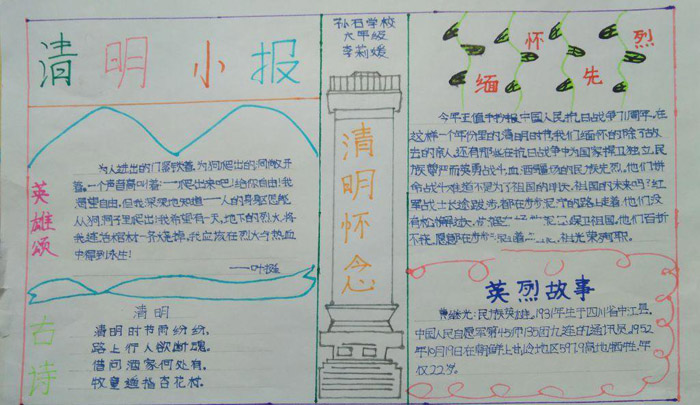 清明小报
英雄颂
为人进出的门紧锁着,为狗爬出的洞敞开
着。一个声音高叫着:一爬出来吧!给你自由!我
渴望自由,但我深深地知道一人的身躯怎能
从狗洞子里爬出!我希望有一天,地下的烈火,将
我连活棺材一齐烧掉,我应该在烈火与热血
中得到永生!
——叶挺
古诗
清明
清明时节雨纷纷,
路上行人欲断魂。
借问酒家何处有,
牧童遥指杏花村。
孙石学校
六年级
李莉媛
清明怀念
缅怀先烈
今年正值中国人民抗日战争71周年。在
这样一个年份里的清明时节,我们缅怀的除了故
去的亲人,还有那些在抗日战争中为国家捍卫独立,民
族尊严而英勇战斗,血洒疆场的民族先烈。他们拼
命战斗难道不是为了祖国的
祖国的未来吗?红
军战士长途跋涉,都在步步泥泞的路上走着,他们没
有松懈过
保卫祖国。他们百折
不挠,愿意在步步
祖光荣
英烈故事
黄继光:民族英雄。1931年生于四川省中江县。
中国人民自愿军第45师135团九连的通讯员。1952
年10月19日在朝鲜上甘岭地区597.9高地牺牲。年
仅22岁。